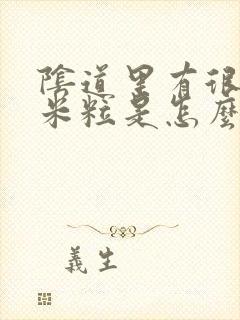 陰道里有很
米粒是怎麼
義生